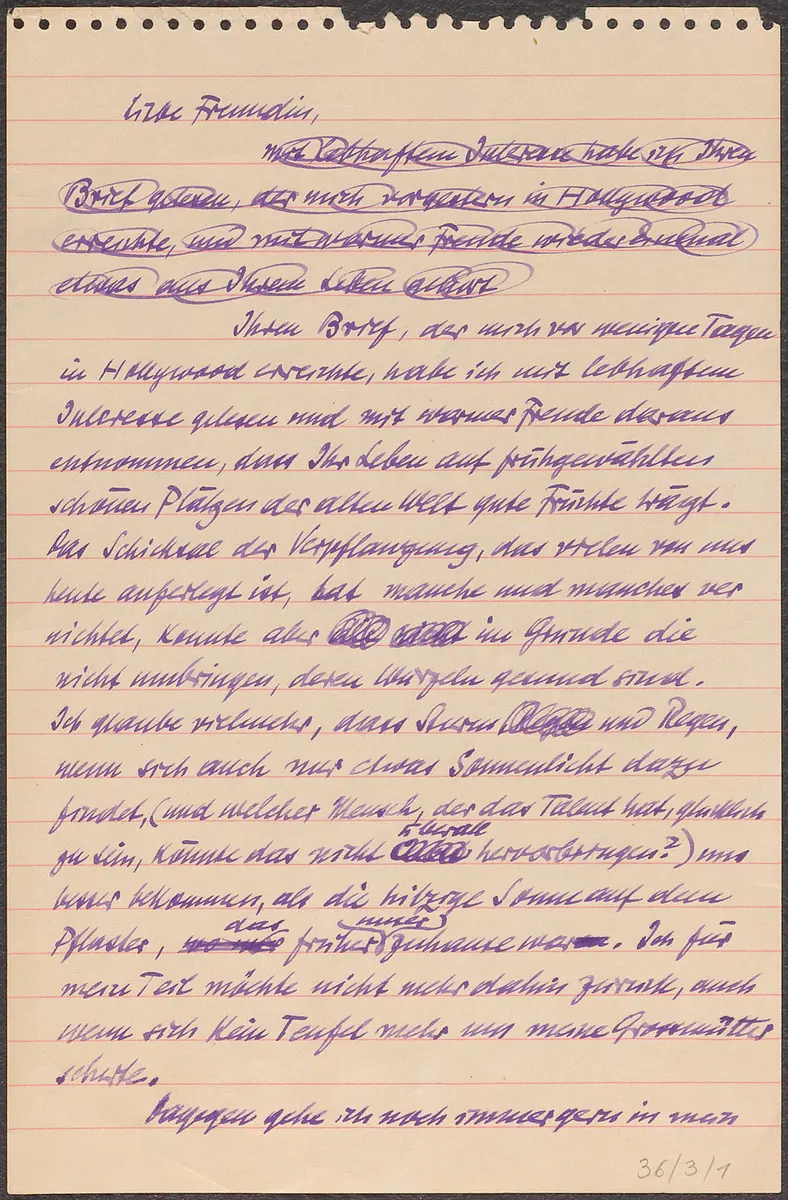 Liebe Freundin,
mit lebhaftem Interesse habe ich Ihren
Brief gelesen, der mich vorgestern in Hollywood
erreichte, und mit warmer Freude wieder einmal
etwas aus Ihrem Leben gehört
Ihren Brief, der mich vor wenigen Tagen
in Hollywood erreichte, habe ich mit lebhaftem
Interesse gelesen und mit warmer Freude daraus
entnommen, dass Ihr Leben auf frühgewählten
schönen Plätzen der alten Welt gute Früchte trägt.
Das Schicksal der Verpflanzung, das vielen von uns
heute auferlegt ist, hat manche und manches ver
nichtet, konnte aber im Grunde die
nicht umbringen, deren Wurzeln gesund sind.
Ich glaube vielmehr, dass Sturm und Regen,
wenn sich auch nur etwas Sonnenlicht dazu
findet, (und welcher Mensch, der das Talent hat, glücklich
überall
zu sein, könnte das nicht hervorbringen?) uns
besser bekommen, als die hitzige Sonne auf dem
das unser
Pflaster, wo wir früher zuhause waren. Ich für
mein Teil möchte nicht mehr dahin zurück, auch
wenn sich kein Teufel mehr um meine Grossmütter
scherte.
Dagegen gehe ich noch immer gern in mein
36/3/1